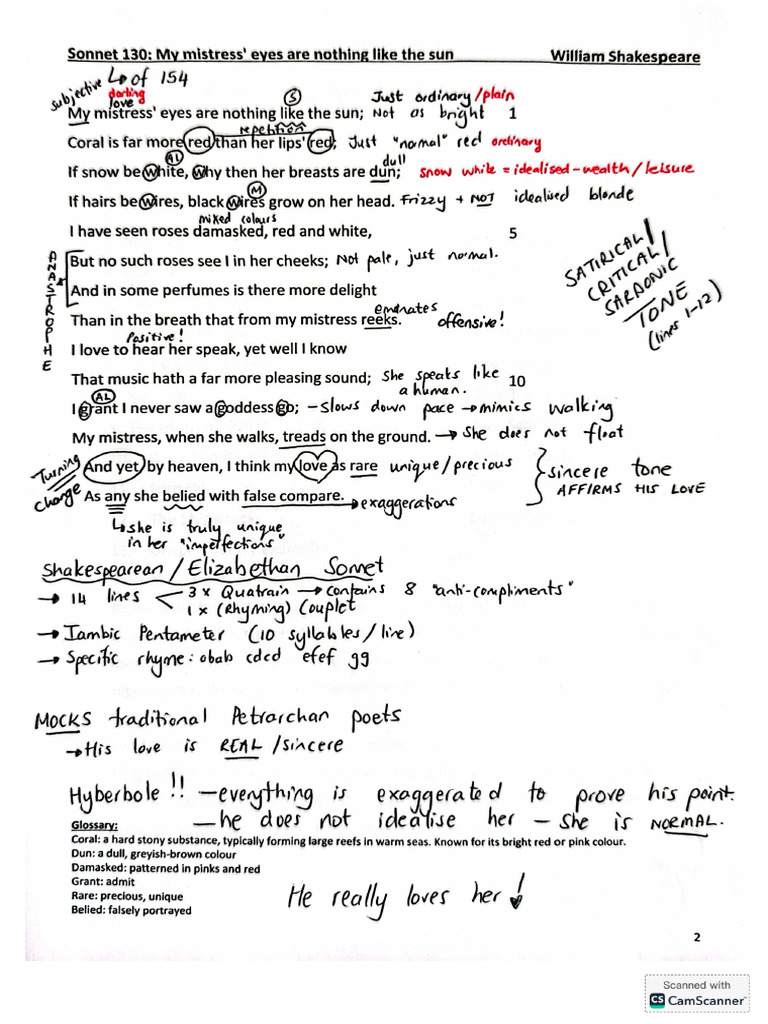 Sonnet 130: My mistress' eyes are nothing like the sun William Shakespeare
↳ of 154
subjective darling love (S) Just ordinary/plain
My mistress' eyes are nothing like the sun; Not as bright 1
repetition
Coral is far more red than her lips' red; Just "normal" red ordinary
(AL) dull
If snow be white, why then her breasts are dun; snow white = idealised - wealth/leisure
(M)
If hairs be wires, black wires grow on her head. Frizzy + NOT idealised blonde
mixed colours
I have seen roses damasked, red and white, 5
But no such roses see I in her cheeks; Not pale, just normal.
ANASTROPHE
And in some perfumes is there more delight
SATIRICAL/
CRITICAL/
SARDONIC
TONE
(lines 1-12)
emanates
Than in the breath that from my mistress reeks. offensive!
Positive!
I love to hear her speak, yet well I know
That music hath a far more pleasing sound; She speaks like a human. 10
(AL)
I grant I never saw a goddess go; - slows down pace → mimics walking
My mistress, when she walks, treads on the ground. → She does not float
Turning
And yet by heaven, I think my love as rare unique/precious } sincere tone
change
As any she belied with false compare. → exaggerations AFFIRMS HIS LOVE
↳ she is truly unique
in her "imperfections"
Shakespearean / Elizabethan Sonnet
→ 14 lines < 3 x Quatrain → contains 8 "anti-compliments"
1 x (Rhyming) Couplet
→ Iambic Pentameter (10 syllables/line)
→ Specific rhyme: abab cdcd efef gg
MOCKS traditional Petrarchan poets
→ His love is REAL /sincere
Hyberbole !! - everything is exaggerated to prove his point.
- he does not idealise her - She is NORMAL.
Glossary:
Coral: a hard stony substance, typically forming large reefs in warm seas. Known for its bright red or pink colour.
Dun: a dull, greyish-brown colour
Damasked: patterned in pinks and red
Grant: admit
Rare: precious, unique
Belied: falsely portrayed
He really loves her!
2
Scanned with
CS CamScanner